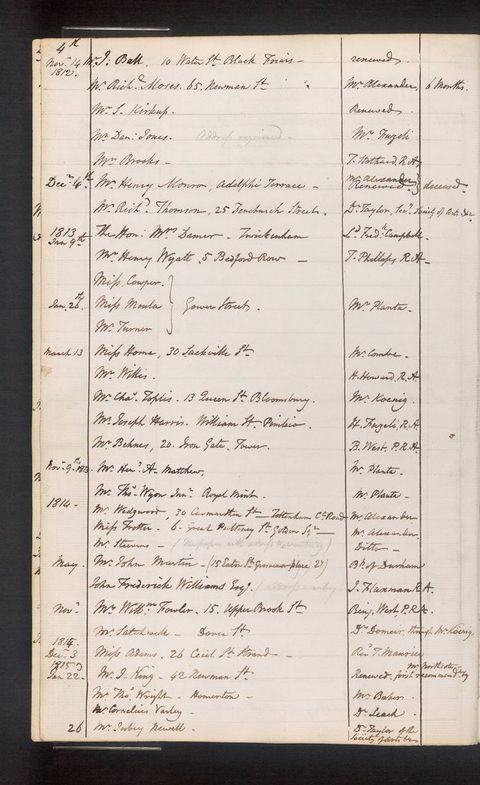 4th
Novr 14 Mr J. Ball, 10 Water St Black Friars — renewed.
1812.
Mr Richd Moses. 65. Newman St Mr Alexander, 6 Months.
Mr S. Kirkup. Renewed
Mr Danl Jones. Address required — Mr Fuzeli
Mr Brooks — T. Stothard, R.A
Decr 4th Mr Henry Monro, Adelphi Terrace — Mr Alexander
Renewed. } deceased.
Mr Richd Thomson, 25 Fenchurch Street. Dr Taylor, Secy Society of Arts &c.
1813
Jan 9th The Hon: Mrs Damer — Twickenham Ld Fredk Campbell.
Mr Henry Wyatt, 5 Bedford Row — T. Phillips R.A—
Miss Cowper.
Jan. 26th Miss Moula } Gower Street. Mr Planta.
Mr Turner
March 13 Miss Horne, 30 Sackville St Mr Combe.
Mr Willis. H. Howard, R.A.
Mr Chas. Toplis. 13 Queen St Bloomsbury. Mr Koenig.
Mr Joseph Harris. William St Pimlico. H. Fuzeli, R.A.
Mr Behnes, 20. Iron Gate, Tower. B. West, P.R.A.
Novr 9th 1813. Mr Henr. A. Matthew, Mr Planta.
Mr Thos Wyon Junr. Royal Mint. Mr Planta —
1814. Mr Wedgwood, 30 Carmarthen St — Tottenham Ct Road Mr Alexander
Miss Trotter — 6. Great Pultney St Golden Sqr — Mr Alexander
Mr Stevens — Ditto —
May. Mr John Martin — (15 Eaton St Grosvenor place 27) Bp. of Durham
John Frederick Williams Esqr. J. Flaxman R.A.
Novr Mr Willm Fowler. 15. Upper Brook St Benj. West, P.R.A.
Mr Satchwell — Dover St through Mr Koenig.
1814.
Decr 3 Miss Adams. 26 Cecil St Strand — Revd T. Maurice
1815 Mr Northcote
Jan 22. Mr J. Kong — 42 Newman St. Renewed, first recommendd by
Mr Thos Wright — Homerton — Mr Baber.
Mr Cornelius Varley — Dr Leach.
26 Mr Newell. Dr Taylor of the
Society of Arts &c